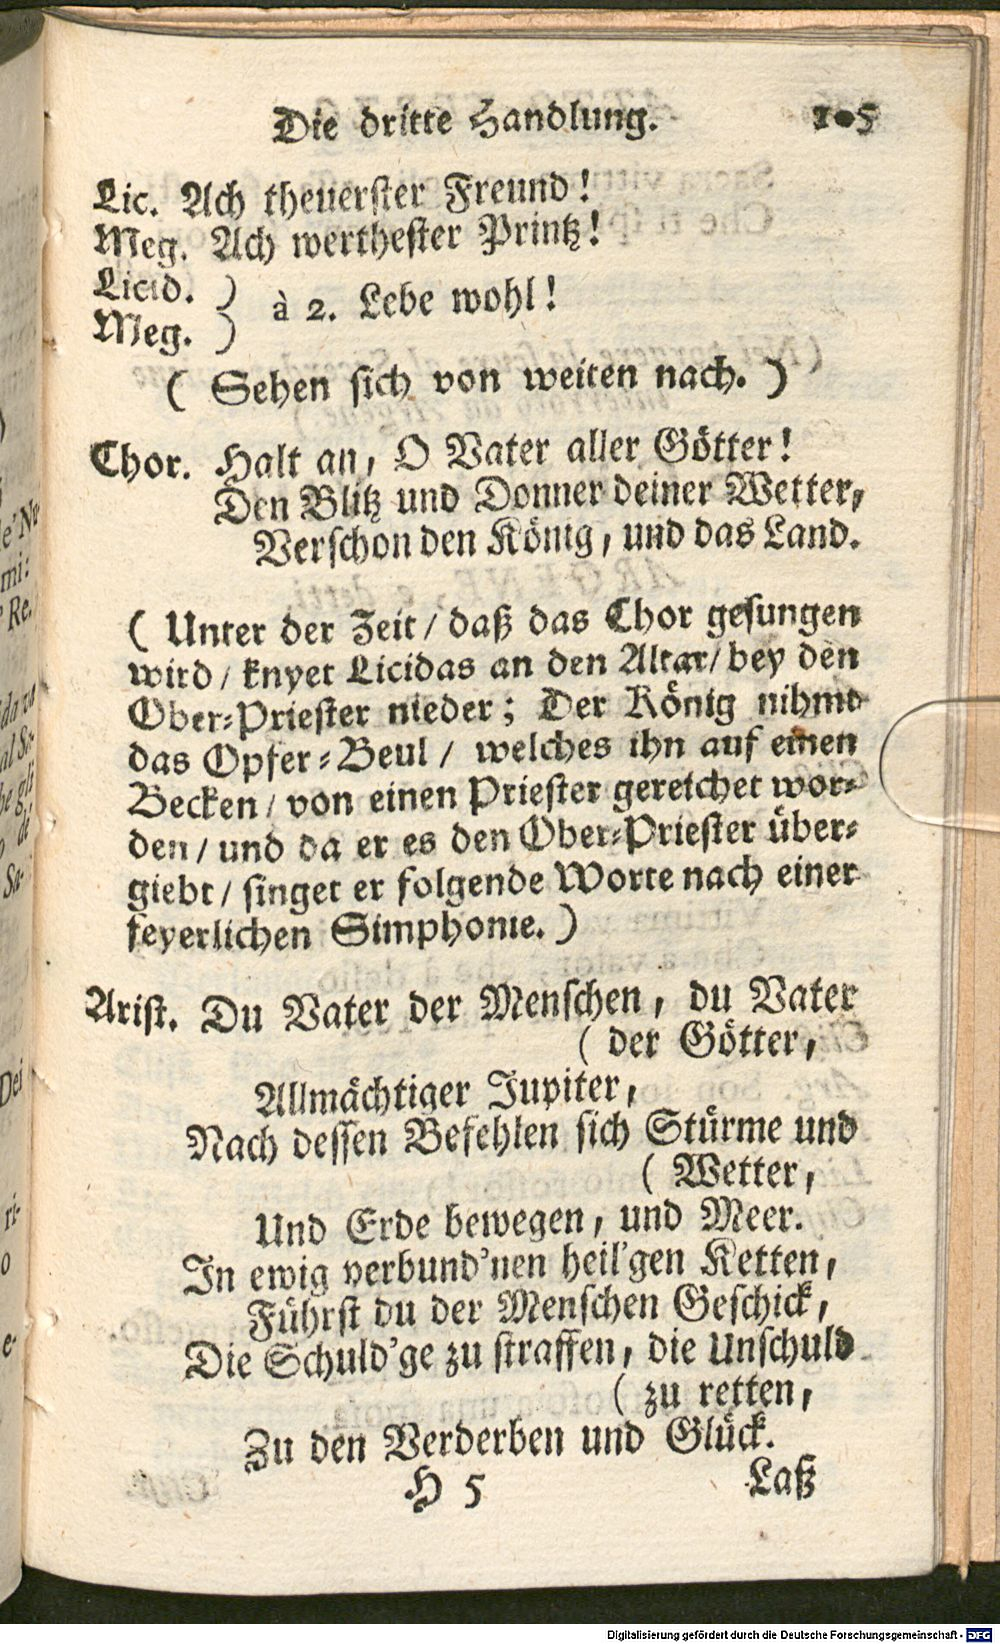 Die dritte Handlung. 105
Lic. Ach theuerster Freund!
Meg. Ach werthester Printz!
Licid. )
Meg. ) à 2. Lebe wohl!
( Sehen sich von weiten nach. )
Chor. Halt an, O Vater aller Götter!
Den Blitz und Donner deiner Wetter,
Verschon den König, und das Land.
( Unter der Zeit / daß das Chor gesungen
wird / knyet Licidas an den Altar / bey den
Ober-Priester nieder; Der König nihmt
das Opfer-Beul / welches ihn auf einen
Becken / von einen Priester gereichet wor-
den / und da er es den Ober-Priester über-
giebt / singet er folgende Worte nach einer
feyerlichen Simphonie. )
Arist. Du Vater der Menschen, du Vater
( der Götter,
Allmächtiger Jupiter,
Nach dessen Befehlen sich Stürme und
( Wetter,
Und Erde bewegen, und Meer.
In ewig verbund'nen heil'gen Ketten,
Führst du der Menschen Geschick,
Die Schuld'ge zu straffen, die Unschuld
( zu retten,
Zu den Verderben und Glück.
H 5 Laß
Digitalisierung gefördert durch die Deutsche Forschungsgemeinschaft - DFG